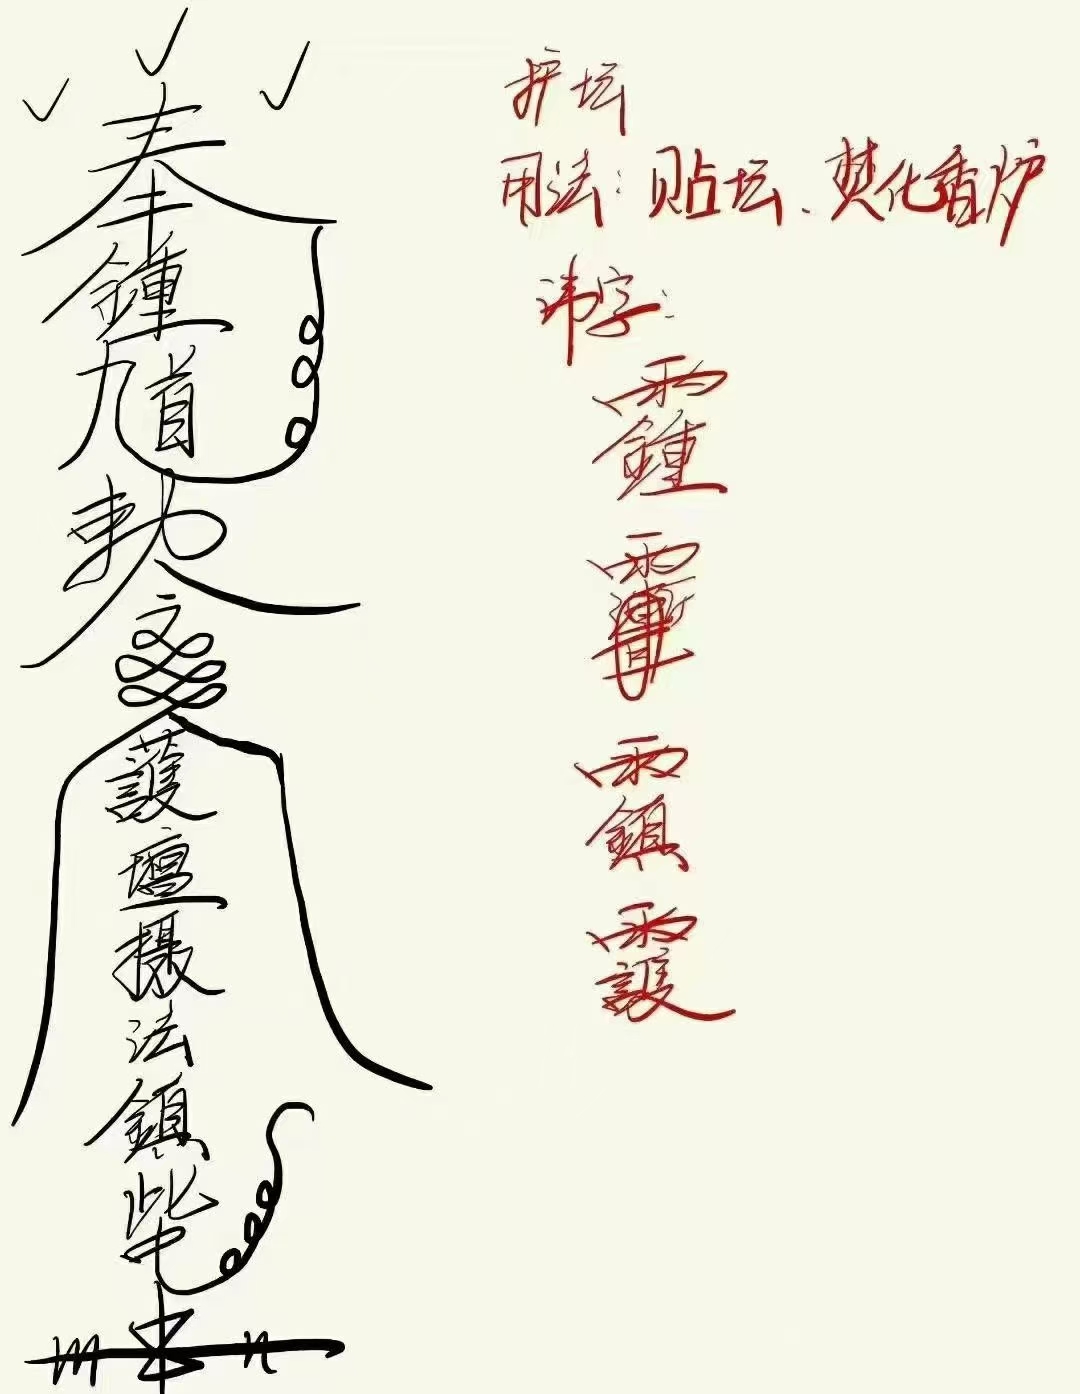 奉
鍾
九首
敕
護
壇
摄
法
鎮
护坛
用法：贴坛、焚化香炉
讳字：
雨
鍾
雨
雨
鎮
雨
護